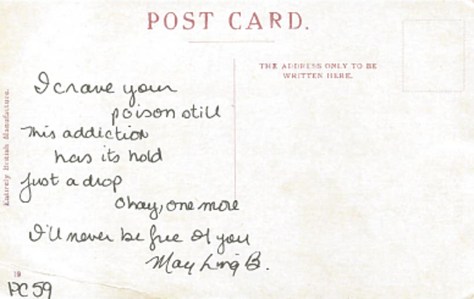 POST CARD.
THE ADDRESS ONLY TO BE
WRITTEN HERE.
Entirely British Manufacture.
I crave your
poison still
This addiction
has its hold
Just a drop
okay, one more
I'll never be free of you
May Ling B.
19
PC59